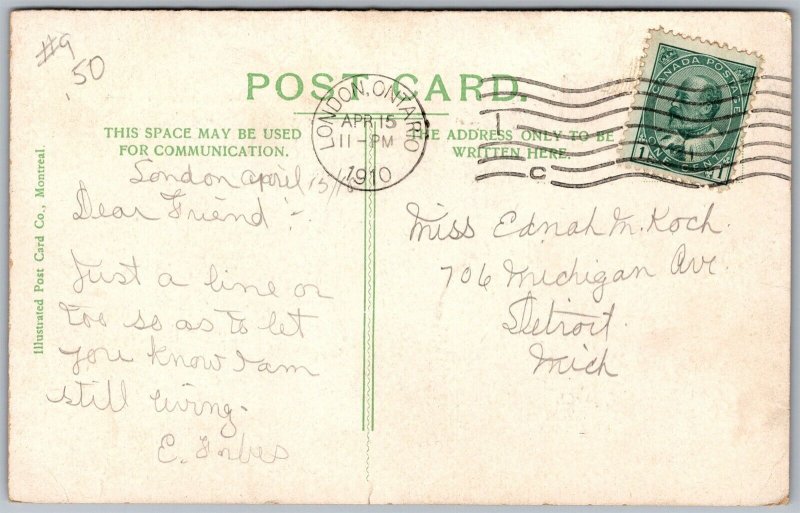 #9
.50
POST CARD.
THIS SPACE MAY BE USED
FOR COMMUNICATION.
THE ADDRESS ONLY TO BE
WRITTEN HERE.
LONDON, ONTARIO
APR 15
11-PM
1910
C
CANADA POSTAGE
ONE CENT
1 1
Illustrated Post Card Co., Montreal.
London April 15/10
Dear Friend:-
Just a line or
too so as to let
you know I am
still living.
E. Forbes
Miss Ednah M. Koch
706 Michigan Ave.
Detroit
Mich